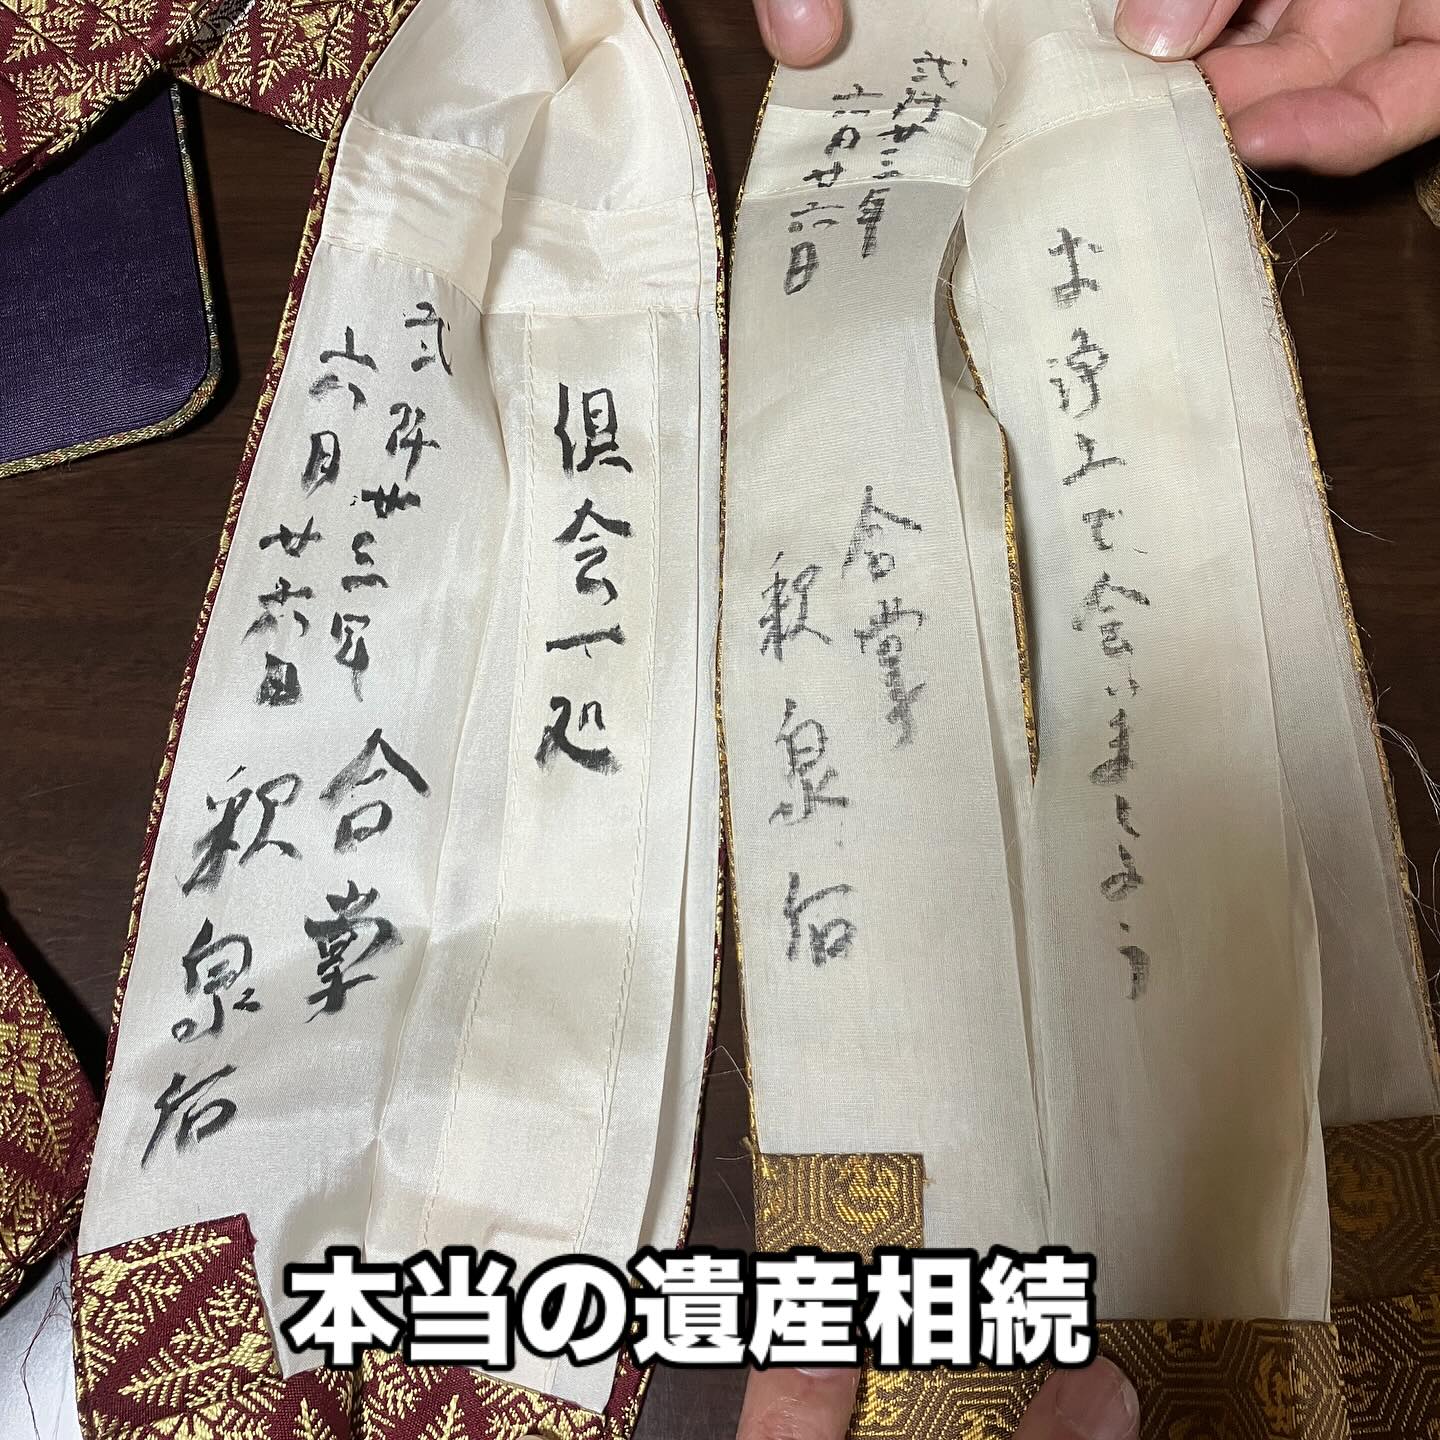 お浄土で会いましょう
弐阡廿三年 合掌
六月廿六日 釈泉佑
倶会一処
弐阡廿三年 合掌
六月廿六日 釈泉佑
本当の遺産相続